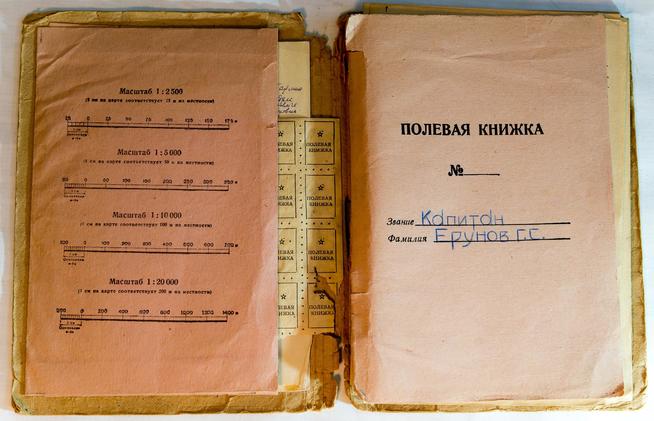 Масштаб 1 : 2 500
(1 см на карте соответствует 25 м на местности)
25 0 25 50 75 100 125 150 175 м
Масштаб 1 : 5 000
(1 см на карте соответствует 50 м на местности)
50 0 50 100 150 200 250 300 350 м
Масштаб 1 : 10 000
(1 см на карте соответствует 100 м на местности)
100 0 100 200 300 400 500 600 700 м
Масштаб 1 : 20 000
(1 см на карте соответствует 200 м на местности)
200 0 200 400 600 800 1000 1200 1400 м
ПОЛЕВАЯ
КНИЖКА
ПОЛЕВАЯ
КНИЖКА
ПОЛЕВАЯ
КНИЖКА
ПОЛЕВАЯ
КНИЖКА
ПОЛЕВАЯ КНИЖКА
№
Звание Капитан
Фамилия Ерунов Г.С.